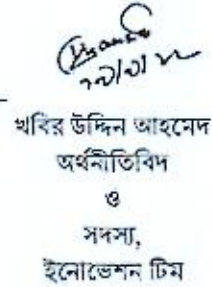 খবির উদ্দিন আহমেদ
অর্থনীতিবিদ
ও
সদস্য,
ইনোভেশন টিম